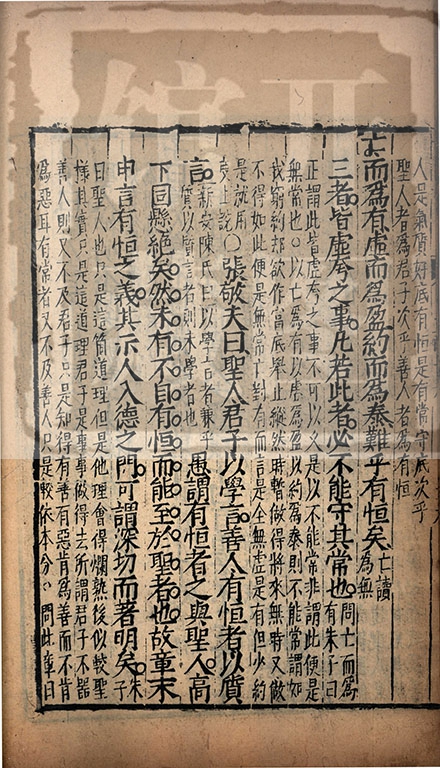 人是氣質好底有恒者是有常守底次乎
聖人者為君子次乎善人者為有恒
亡而為有虛而為盈約而為泰難乎有恒矣亡讀
為無
三者皆虛夸之事凡若此者必不能守其常也問亡而為
有朱子曰
正謂此皆虛夸之事不可以久是以不能常非謂此便是
無常也○以亡為有以虛為盈以約為泰則不能常謂如
我窮約却欲作富底舉止縱然時暫做得將來無時又做
不得如此便是無常亡對有而言是全無虛是有但少約
是就用
度上說○張敬夫曰聖人君子以學言善人有恒者以質
言新安陳氏曰以學言者兼乎
質以質言者則未學者也愚謂有恒者之與聖人高
下固懸絕矣然未有不自有恒而能至於聖者也故章末
申言有恒之義其示人入德之門可謂深切而著明矣朱
子
曰聖人也只是這箇道理但是他理會得爛熟後似較聖
樣其實只是這道理君子是事事做得去所謂君子不器
善人則又不及君子只是知得有善有惡肯為善而不肯
為惡耳有常者又不及善人只是較依本分○問此章曰